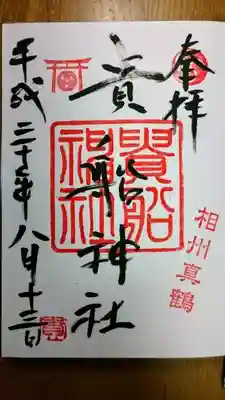 奉拝
貴船神社
貴船神社
相州真鶴
平成三十年八月十三日